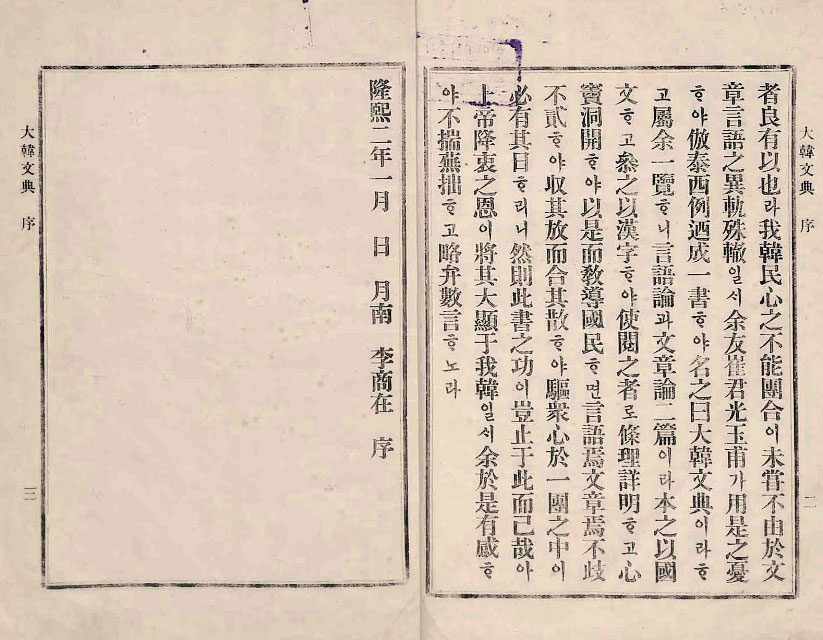 大韓文典 序
二
者良有以也라我韓民心之不能團合이未嘗不由於文
章言語之異軌殊轍일시余友崔君光玉甫가用是之憂
ᄒᆞ야倣泰西例迺成一書ᄒᆞ야名之曰大韓文典이라ᄒᆞ
고屬余一覽ᄒᆞ니言語論과文章論二篇이라本之以國
文ᄒᆞ고叅之以漢字ᄒᆞ야使閱之者로條理詳明ᄒᆞ고心
竇洞開ᄒᆞ야以是而敎導國民ᄒᆞ면言語焉文章焉不歧
不貳ᄒᆞ야収其放而合其散ᄒᆞ야驅衆心於一團之中이
必有其日ᄒᆞ리니然則此書之功이豈止于此而已哉아
上帝降衷之恩이將其大顯于我韓일시余於是有感ᄒᆞ
야不揣蕪拙ᄒᆞ고略弁數言ᄒᆞ노라
隆熙二年一月 日 月南 李商在 序
大韓文典 序
三